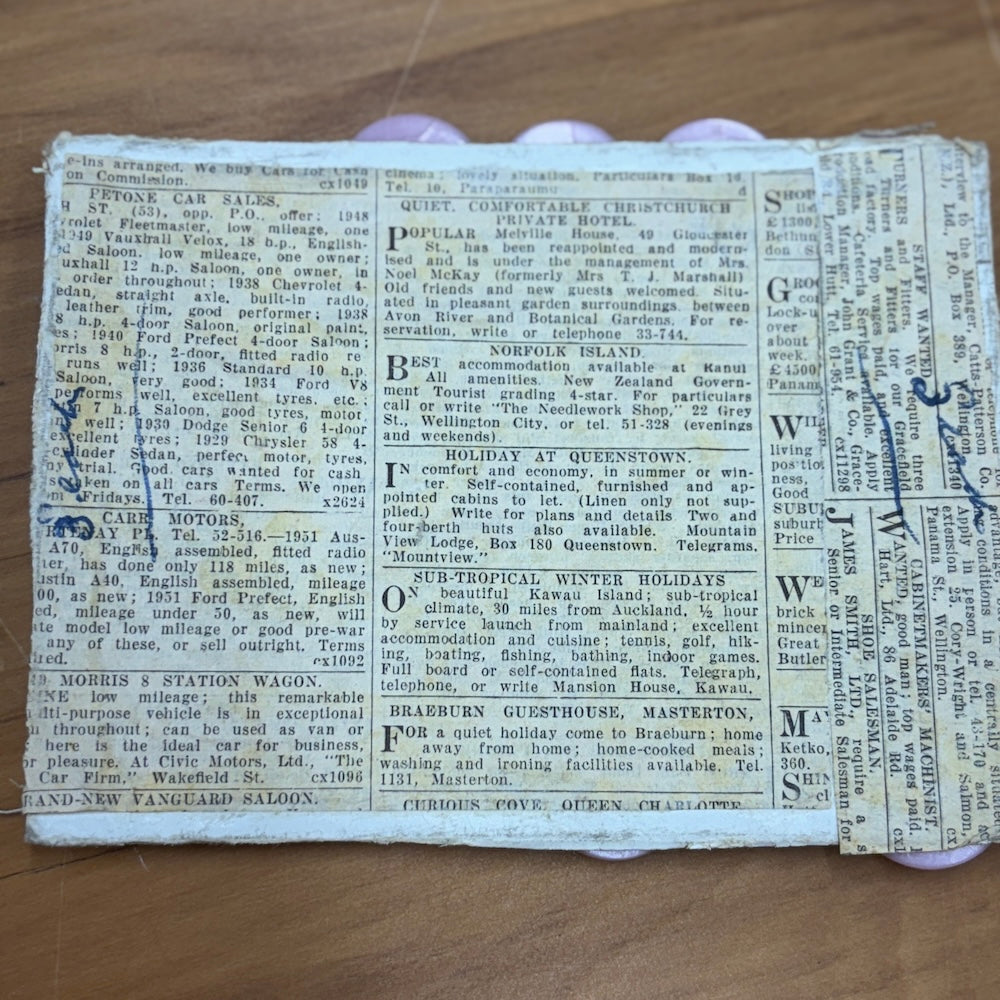 e-ins arranged. We buy Cars for Cash
on Commission. cx1049
PETONE CAR SALES,
H ST. (53), opp. P.O., offer: 1948
rolet Fleetmaster, low mileage, one
1949 Vauxhall Velox, 18 h.p., English-
ed Saloon, low mileage, one owner;
uxhall 12 h.p. Saloon, one owner, in
order throughout; 1938 Chevrolet 4-
edan, straight axle, built-in radio,
leather trim, good performer; 1938
8 h.p. 4-door Saloon, original paint,
es; 1940 Ford Prefect 4-door Saloon;
orris 8 h.p., 2-door, fitted radio re
runs well; 1936 Standard 10 h.p.
Saloon, very good; 1934 Ford V8
performs well, excellent tyres, etc.;
n 7 h.p. Saloon, good tyres, motor
well; 1939 Dodge Senior 6 4-door
excellent tyres; 1929 Chrysler 58 4-
cylinder Sedan, perfect motor, tyres,
ny trial. Good cars wanted for cash
s taken on all cars Terms. We open
m Fridays. Tel. 60-407. x2624
CARR MOTORS,
PL. Tel. 52-516.—1951 Aus-
A70, English assembled, fitted radio
ter, has done only 118 miles, as new;
ustin A40, English assembled, mileage
00, as new; 1951 Ford Prefect, English
ed, mileage under 50, as new, will
te model low mileage or good pre-war
any of these, or sell outright. Terms
ired. cx1092
49 MORRIS 8 STATION WAGON.
INE low mileage; this remarkable
lti-purpose vehicle is in exceptional
n throughout; can be used as van or
here is the ideal car for business,
or pleasure. At Civic Motors, Ltd., "The
Car Firm," Wakefield St. cx1096
RAND-NEW VANGUARD SALOON.
cinema; lovely situation. Particulars Box 16,
Tel. 10, Paraparaumu d
QUIET, COMFORTABLE CHRISTCHURCH
PRIVATE HOTEL.
POPULAR Melville House, 49 Gloucester
St., has been reappointed and modern-
ised and is under the management of Mrs.
Noel McKay (formerly Mrs T. J. Marshall)
Old friends and new guests welcomed Situ-
ated in pleasant garden surroundings, between
Avon River and Botanical Gardens. For re-
servation, write or telephone 33-744.
NORFOLK ISLAND.
BEST accommodation available at Kanui
All amenities. New Zealand Govern-
ment Tourist grading 4-star. For particulars
call or write "The Needlework Shop," 22 Grey
St., Wellington City, or tel. 51-328 (evenings
and weekends).
HOLIDAY AT QUEENSTOWN.
IN comfort and economy, in summer or win-
ter. Self-contained, furnished and ap-
pointed cabins to let. (Linen only not sup-
plied.) Write for plans and details Two and
four-berth huts also available. Mountain
View Lodge, Box 180 Queenstown. Telegrams,
"Mountview."
SUB-TROPICAL WINTER HOLIDAYS
ON beautiful Kawau Island; sub-tropical
climate, 30 miles from Auckland, ½ hour
by service launch from mainland; excellent
accommodation and cuisine; tennis, golf, hik-
ing, boating, fishing, bathing, indoor games.
Full board or self-contained flats. Telegraph,
telephone, or write Mansion House, Kawau.
BRAEBURN GUESTHOUSE, MASTERTON,
FOR a quiet holiday come to Braeburn; home
away from home; home-cooked meals;
washing and ironing facilities available. Tel.
1131, Masterton.
CURIOUS COVE, QUEEN CHARLOTTE
SHOP
£1300
Bethun
don S
GRO
con
Lock-u
over
about
week.
£4500
Panam
WIL
living
positio
ness,
Good
SUBU
suburb
Price
WE
brick
mincer
Great
Butler
MAY
Ketko,
360.
SHIN
terview to the Manager, Catts-Patterson Co.
N.Z.), Ltd., P.O. Box 389, Wellington.
STAFF WANTED
TURNERS and Fitters. We require three
Turners and Fitters for our Gracefield
ad factory. Top wages paid, and excellent
onditions. Cafeteria Service available Apply
roduction Manager, John Grant & Co., Grace-
Lower Hutt. Tel. 61-954. cx11298
conditions in a centrally situated
Apply in person or tel. 43-170 and
extension 25. Cory-Wright and Salmon,
Panama St., Wellington.
CABINETMAKERS' MACHINIST.
WANTED, good man; top wages paid.
Hart, Ltd., 86 Adelaide Rd.
SHOE SALESMAN.
JAMES SMITH, LTD., require a
Senior or Intermediate Salesman for